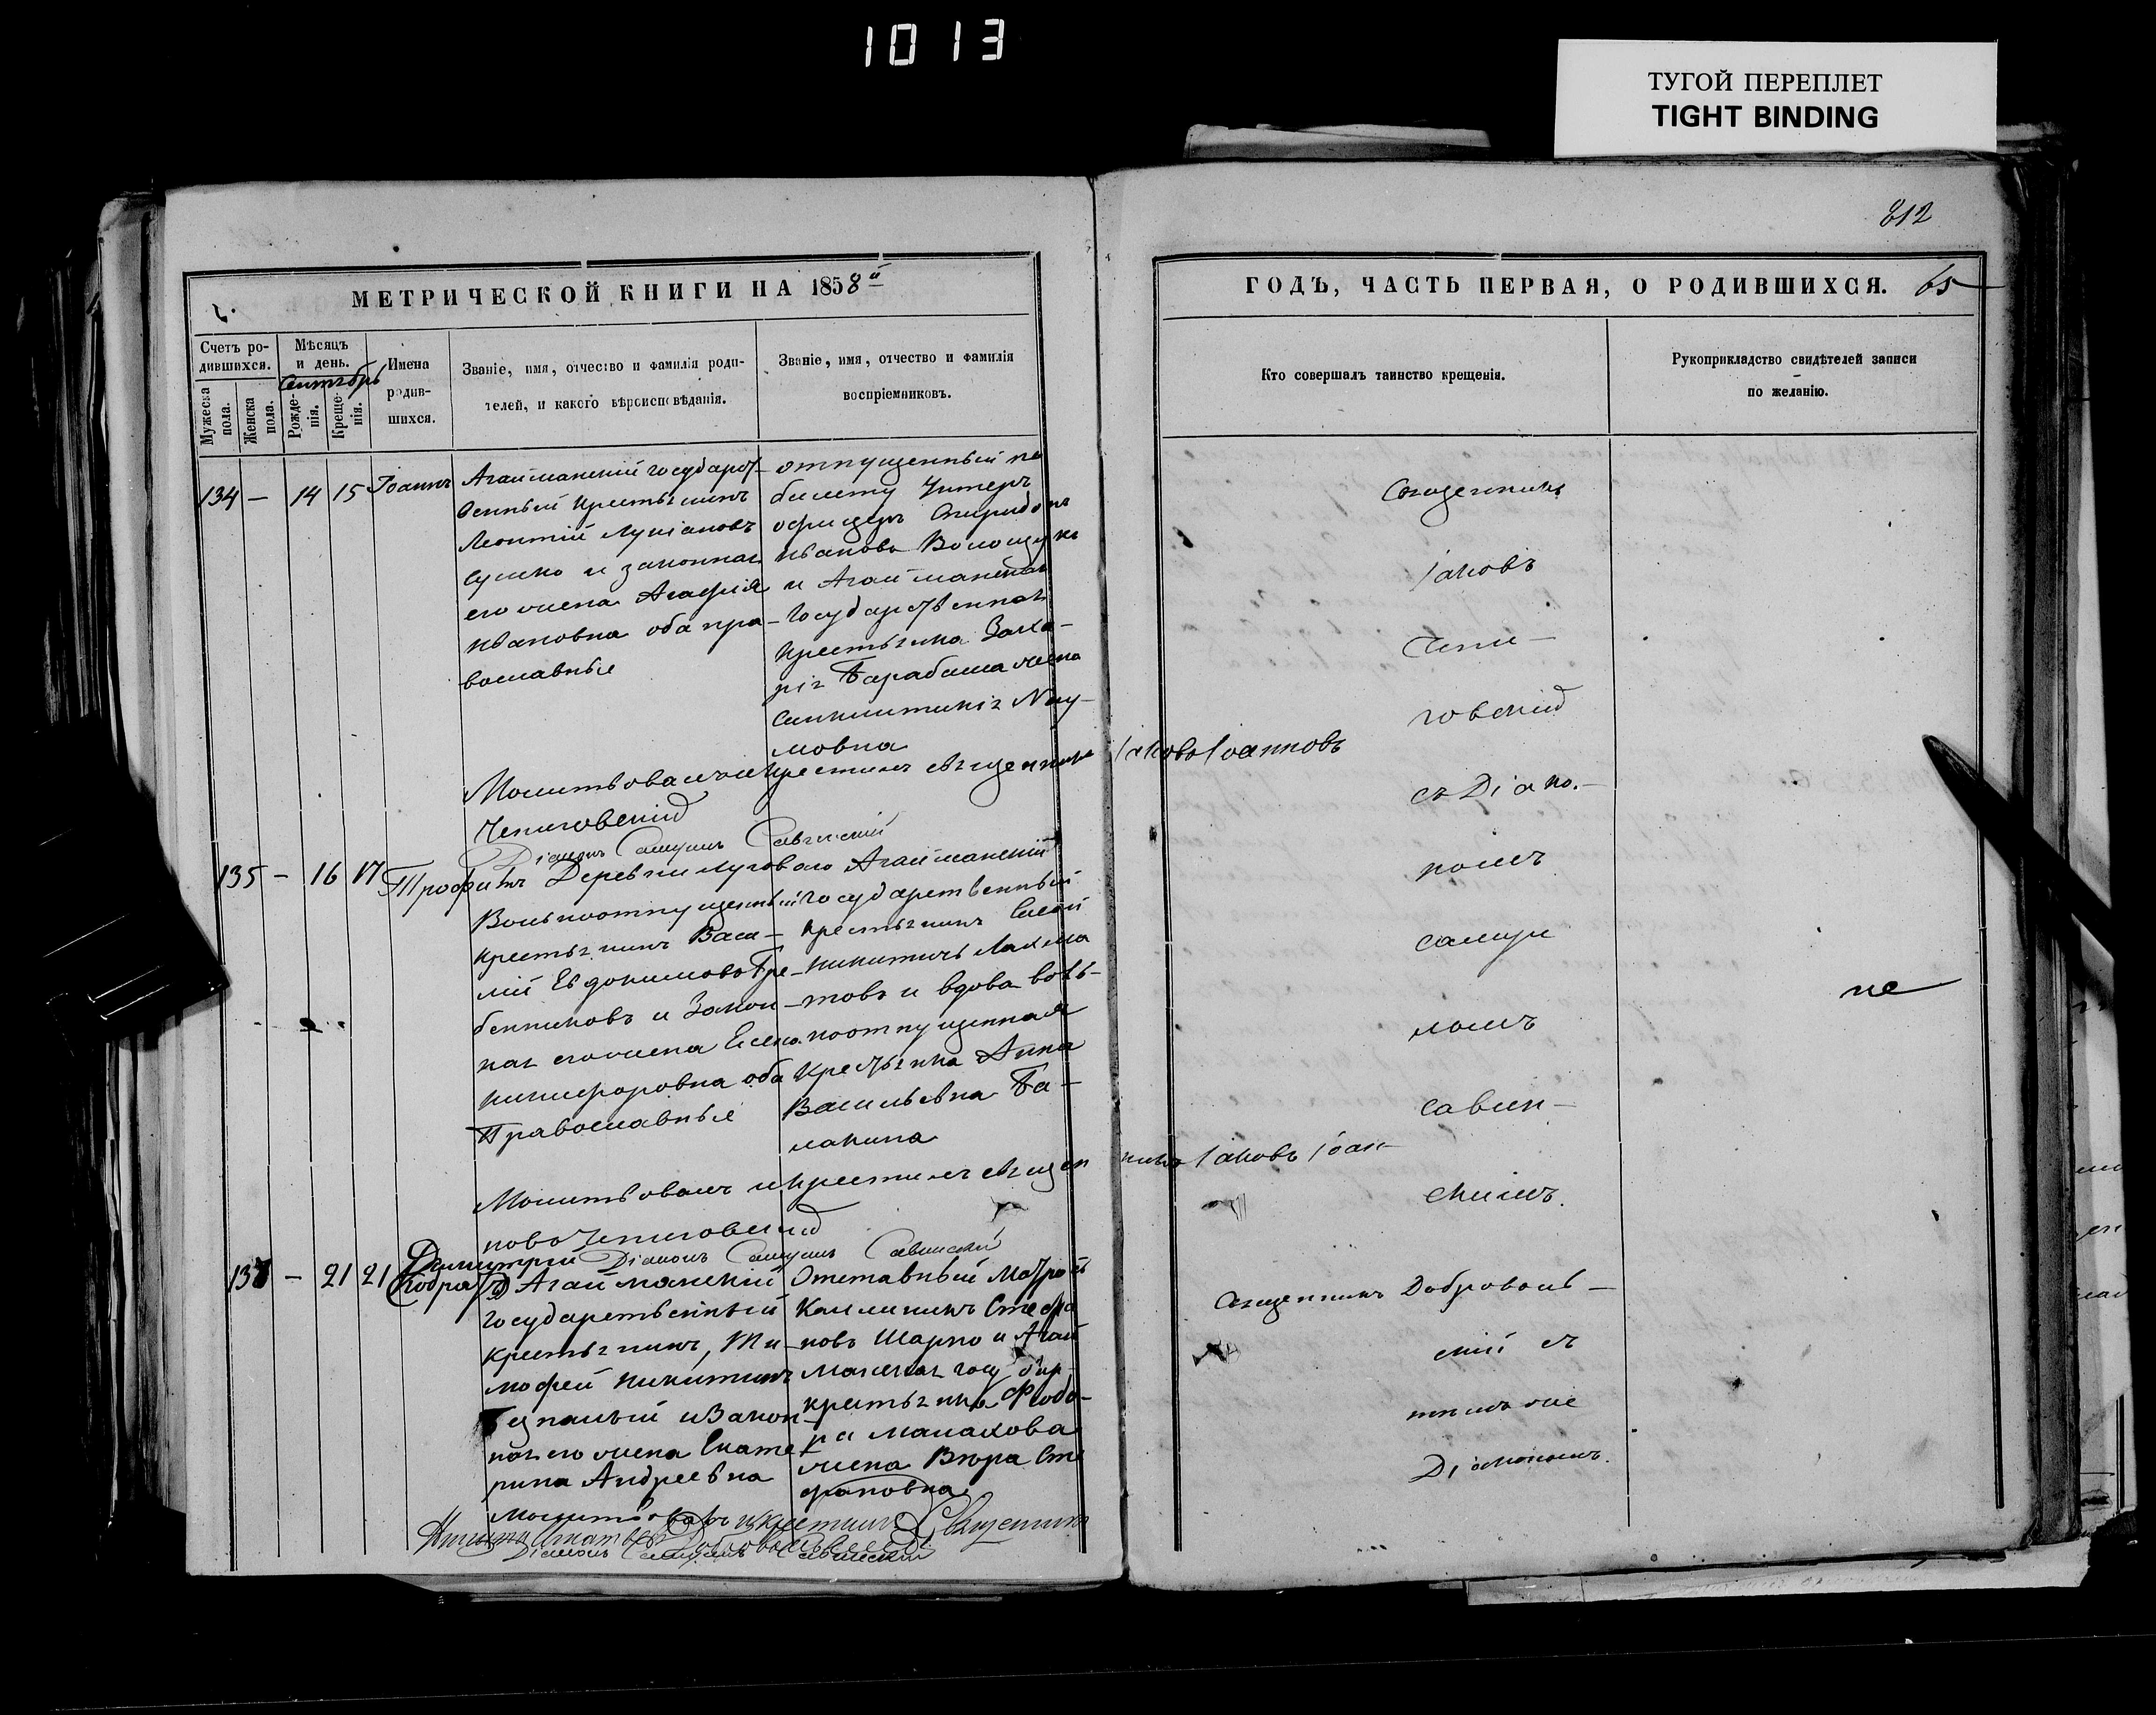 1013
ТУГОЙ ПЕРЕПЛЕТ
TIGHT BINDING
812
МЕТРИЧЕСКОЙ КНИГИ НА 1858й
ГОДЪ, ЧАСТЬ ПЕРВАЯ, О РОДИВШИХСЯ. 65
Счетъ ро-
дившихся.
Мужеска пола.
Женска пола.
Мѣсяцъ
и день.
Сентябрь
Рожде-
нія.
Креще-
нія.
Имена
родив-
шихся.
Званіе, имя, отчество и фамилія роди-
телей, и какого вѣроисповѣданія.
Званіе, имя, отчество и фамилія
воспріемниковъ.
Кто совершалъ таинство крещенія.
Рукоприкладство свидѣтелей записи
по желанію.
134 — 14 15 Іоаннъ
Агайманскій государст-
венный крестьянинъ
Леонтій Лукіановъ
и законная
его жена Агафія
Ивановна оба пра-
вославные
отпущенный по
билету Унтеръ
офицеръ Спиридонъ
Ивановъ
и Агайманская
Государственная
крестьянка Заха-
рія Барабаша жена
Синклитикія Нау-
мовна
Священникъ
Іаковъ
Чепи-
говскій
съ Діако-
номъ
Самуи
ломъ
Савин-
скимъ.
Молитвовалъ и крестилъ священникъ Іаковъ Іоанновъ
Чепиговскій
Діаконъ Самуилъ Савинскій
135 — 16 17 Трофимъ
Деревни Лугового
Вольноотпущенный
крестьянинъ Васи-
лій Евдокимовъ Гре-
бенниковъ и Закон-
ная его жена Елена
Никифоровна оба
Православные
Агайманскій
государственный
крестьянинъ
Никитичъ Лахма
товъ и вдова воль-
ноотпущенная
крестьянка Анна
Васильевна Ба-
лакина
не
Молитвовалъ и крестилъ священ
никъ Іаковъ Іоан-
новъ Чепиговскій
Діаконъ Самуилъ Савинскій
136 — 21 21 Димитрій
Агайманскій
государственный
крестьянинъ, Ти-
мофей Никитинъ
и Закон-
ная его жена Екате
рина Андреевна
Отставный Матросъ
Стефа
новъ Шарко и Агай
манская государ.
крестьянка Ѳеодо-
ра Малахова
жена Вѣра Сте
фановна
Священникъ Доброволь-
скій съ
тѣмъ же
Діакономъ.
Молитвовалъ и крестилъ Священникъ
Добровольскій
Діаконъ Самуилъ Савинскій